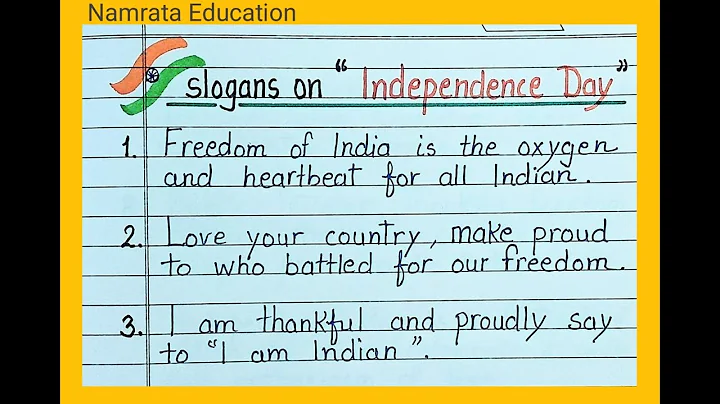 Namrata Education
slogans on "Independence Day"
1. Freedom of India is the oxygen
and heartbeat for all Indian.
2. Love your country, make proud
to who battled for our freedom.
3. I am thankful and proudly say
to "I am Indian".